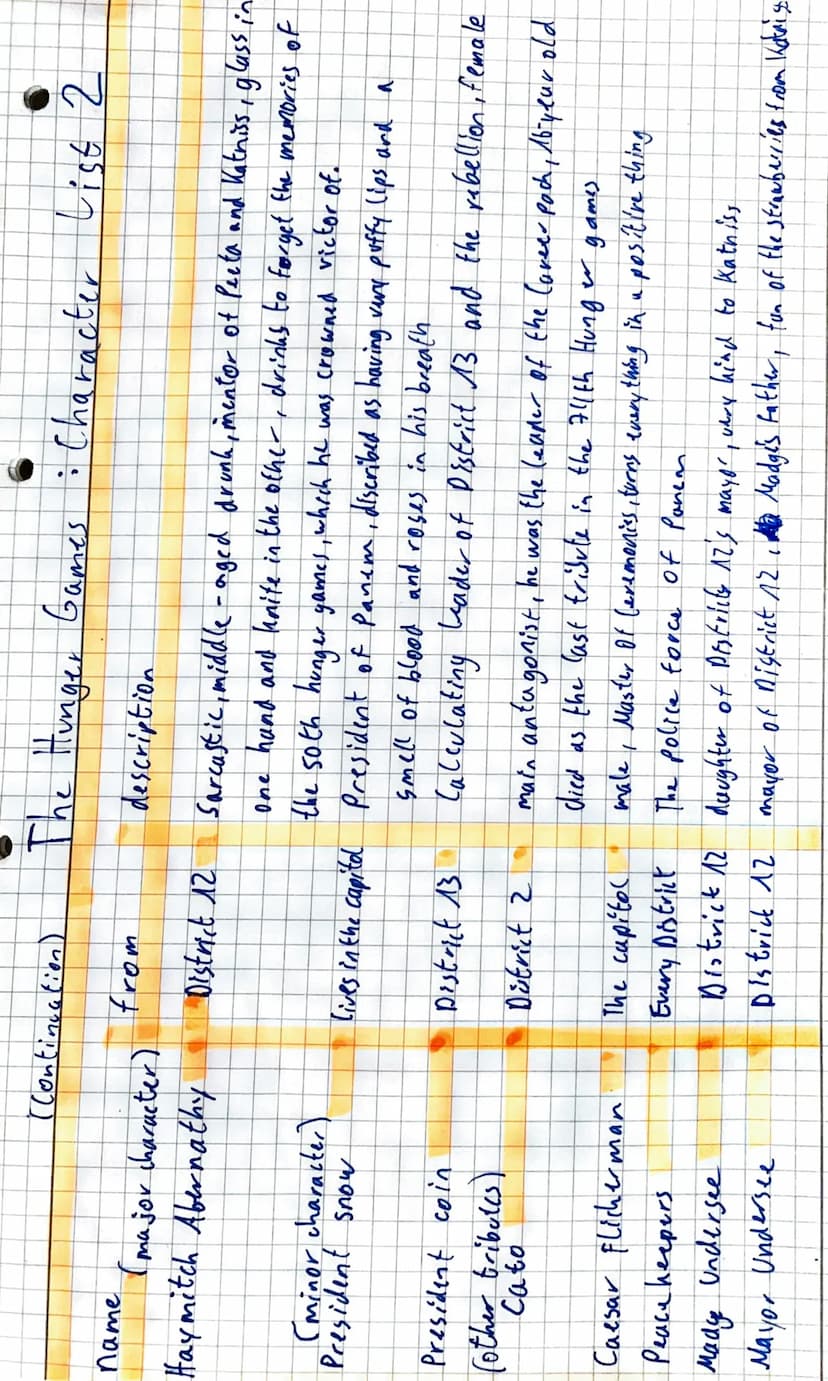 (Continuation) The Hunger Games : Character List 2
Name (major character) from description
Haymitch Abernathy District 12 Sarcastic, middle-aged drunk, mentor of Peeta and Katniss, glass in
one hand and knife in the other, drinks to forget the memories of
the 50th hunger games, which he was crowned victor of.
(minor character)
President snow lives in the capitol President of Panem, discribed as having very puffy lips and a
smell of blood and roses in his breath
President coin District 13 Calculating leader of District 13 and the rebellion, female
(other tributes)
Cato District 2 main antagonist, he was the leader of the Career pack, 16 year old
died as the last tribute in the 74th Hunger games
Caesar Flickerman The capitol male, Master Of Ceremonies, turns everything in a positive thing
Peacekeepers Every District The police force of Panem
Madge Undersee District 12 daughter of District 12's mayor, very kind to Katniss
Mayor Undersee District 12 mayor of District 12, Madges Father, fan of the strawberries from Katniss